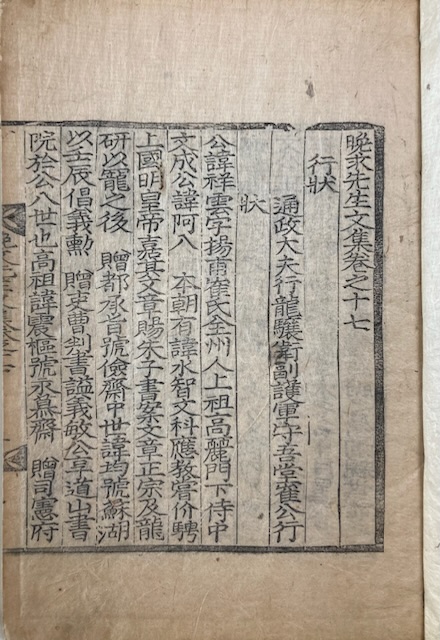 晩求先生文集卷之十七
行狀
通政大夫行龍驤衛副護軍守吾堂崔公行
狀
公諱祥雲字揚甫崔氏全州人上祖高麗門下侍中
文成公諱阿八 本朝有諱水智文科應敎嘗价聘
上國明皇帝嘉其文章賜朱子書案文章正宗及龍
研以寵之後 贈都承旨號儉齋中世諱均號蘇湖
以壬辰倡義勳 贈吏曹判書謚義敏公享道山書
院於公八世也高祖諱震樞號永慕齋 贈司憲府